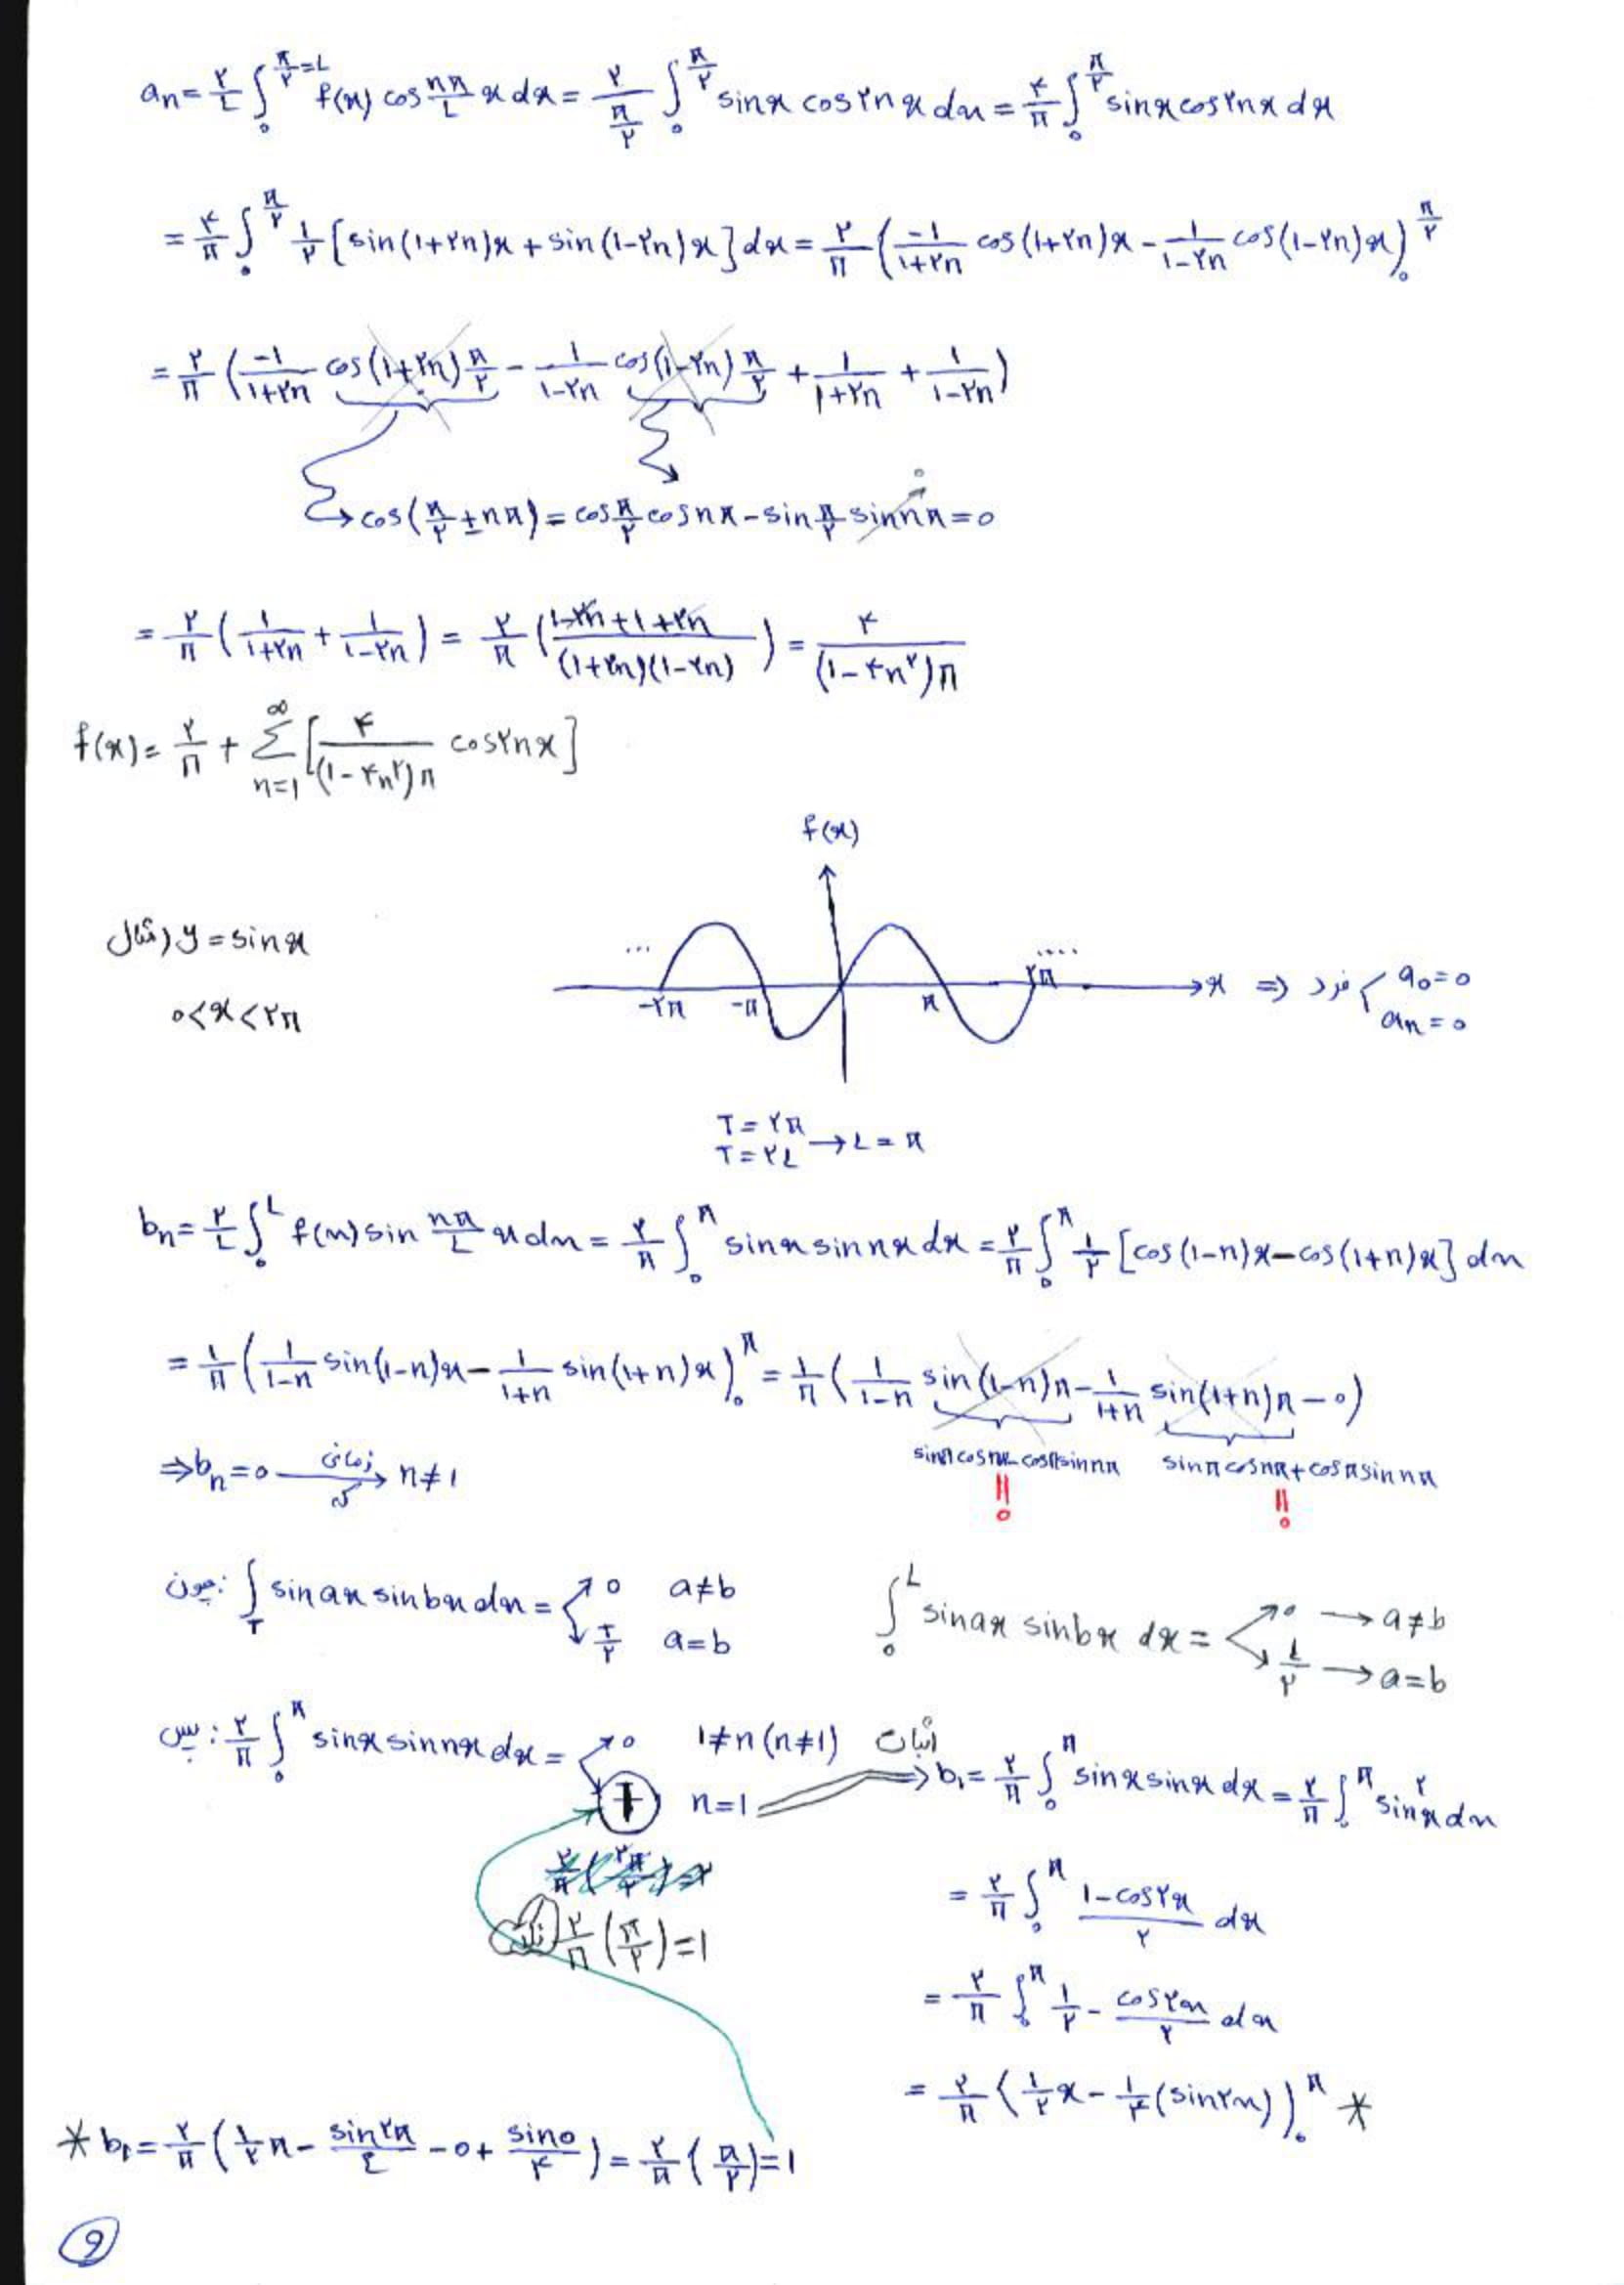 aₙ = ۲/L ∫₀^(π/۲=L) f(x) cos nπ/L x dx = ۲/(π/۲) ∫₀^(π/۲) sinx cos۲nx dx = ۴/π ∫₀^(π/۲) sinx cos۲nx dx
= ۴/π ∫₀^(π/۲) ۱/۲ [sin(۱+۲n)x + sin(۱-۲n)x] dx = ۲/π (-۱/(۱+۲n) cos(۱+۲n)x - ۱/(۱-۲n) cos(۱-۲n)x)₀^(π/۲)
= ۲/π (-۱/(۱+۲n) cos(۱+۲n)π/۲ - ۱/(۱-۲n) cos(۱-۲n)π/۲ + ۱/(۱+۲n) + ۱/(۱-۲n))
→ cos(π/۲ ± nπ) = cos π/۲ cos nπ - sin π/۲ sin nπ = 0
= ۲/π (۱/(۱+۲n) + ۱/(۱-۲n)) = ۲/π ((۱-۲n+۱+۲n)/((۱+۲n)(۱-۲n))) = ۴/((۱-۴n۲)π)
f(x) = ۲/π + Σ_(n=1)^∞ [۴/((۱-۴n۲)π) cos۲nx]
f(x)
مثال) y = sinx
0<x<۲π
... -۲π -π π ۲π .... x ⇒ فرد { a₀=0 aₙ=0
T=۲π
T=۲L → L=π
bₙ = ۲/L ∫₀^L f(x) sin nπ/L x dx = ۲/π ∫₀^π sinx sin nx dx = ۲/π ∫₀^π ۱/۲ [cos(۱-n)x - cos(۱+n)x] dx
= ۱/π (۱/(۱-n) sin(۱-n)x - ۱/(۱+n) sin(۱+n)x)₀^π = ۱/π (۱/(۱-n) sin(۱-n)π - ۱/(۱+n) sin(۱+n)π - 0)
sinπ cosnπ - cosπ sinnπ = 0 sinπ cosnπ + cosπ sinnπ = 0
⇒ bₙ = 0 زمانی که → n≠1
چون: ∫_T sin ax sin bx dx = 0 a≠b
T/۲ a=b
∫₀^L sin ax sin bx dx = 0 → a≠b
L/۲ → a=b
پس: ۲/π ∫₀^π sinx sin nx dx = 0 1≠n (n≠1)
1 n=1 اثبات ⇒ b₁ = ۲/π ∫₀^π sinx sinx dx = ۲/π ∫₀^π sin۲x dx
۲/π (π/۲) = 1
= ۲/π ∫₀^π (1-cos۲x)/۲ dx
= ۲/π ∫₀^π ۱/۲ - cos۲x/۲ dx
= ۲/π (۱/۲ x - ۱/۴ (sin۲x))₀^π *
* b₁ = ۲/π (۱/۲ π - sin۲π/٤ - 0 + sin0/۴) = ۲/π (π/۲) = 1
9